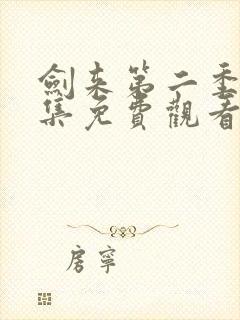 劍来第二季
集免費觀看
房寧